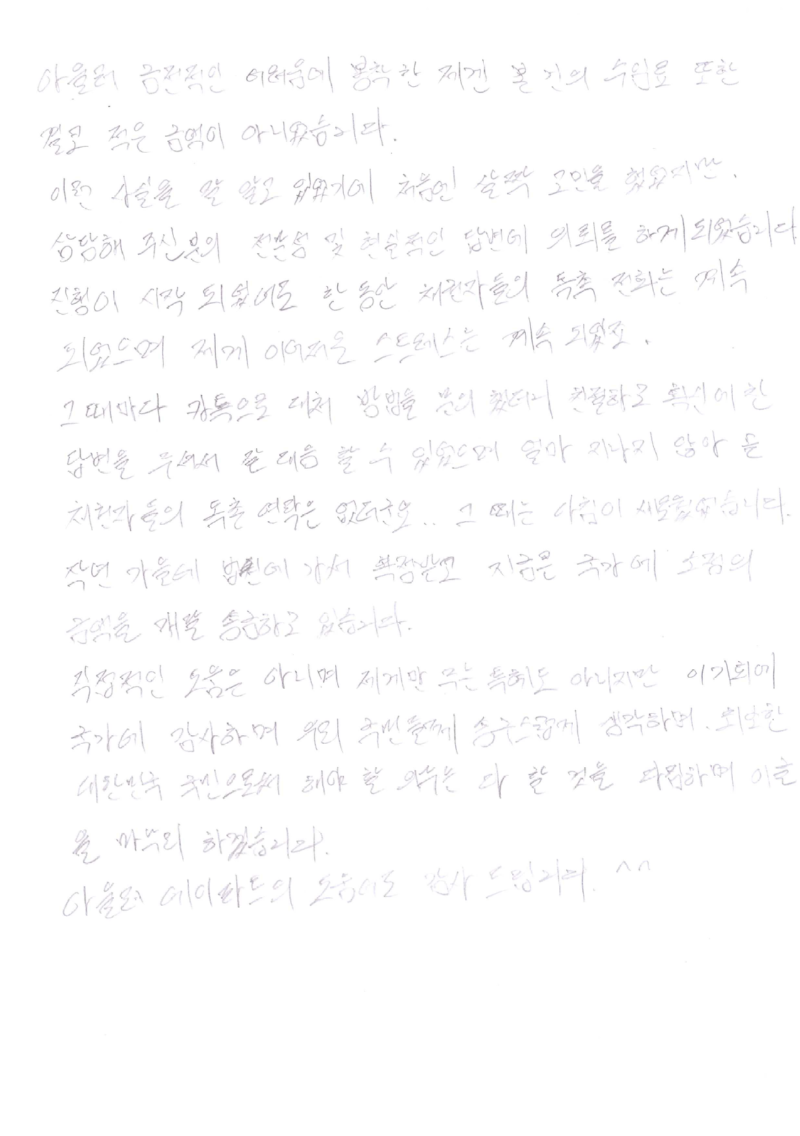 아울러 금전적인 어려움에 봉착한 제겐 본 건의 수임료 또한
결코 적은 금액이 아니었습니다.
이런 사실을 잘 알고 있었기에 처음엔 살짝 고민을 했었지만,
상담해 주신분의 전문성 및 현실적인 답변에 의뢰를 하게 되었습니다
진행이 시작 되었어도 한 동안 채권자들의 독촉 전화는 계속
되었으며 제게 이어지는 스트레스는 계속 되었죠.
그때마다 카톡으로 대처 방법을 문의 했더니 친절하고 확신에 찬
답변을 주셔서 잘 대응 할 수 있었으며 얼마 지나지 않아
채권자들의 독촉 연락은 없더군요.. 그 때는 아침이 새로웠습니다.
작년 가을에 법원에 가서 확정받고 지금은 국가에 소정의
금액을 매월 송금하고 있습니다.
직접적인 도움은 아니며 제게만 주는 특혜도 아니지만 이기회에
국가에 감사하며 우리 국민들께 송구스럽게 생각하며, 최소한
대한민국 국민으로써 해야 할 의무는 다 할 것을 다짐하며 이글
을 마무리 하겠습니다.
아울러 에이파트의 도움에도 감사 드립니다. ^^